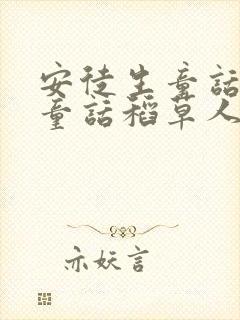 安徒生童話
童話稻草人
亦妖言